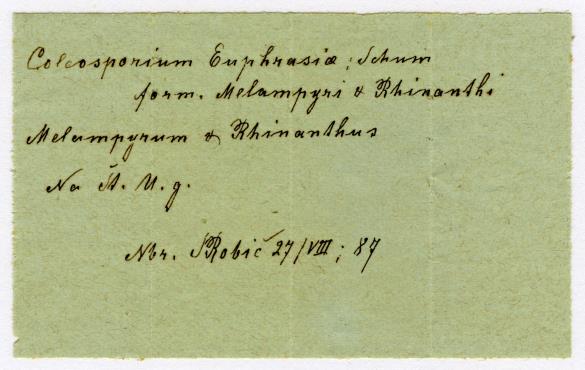 Coleosporium Euphrasiæ; Schum
form. Melampyri & Rhinanthi
Melampyrum & Rhinanthus
Na Št. M. g.
Nbr. SRobič 27/VIII; 87